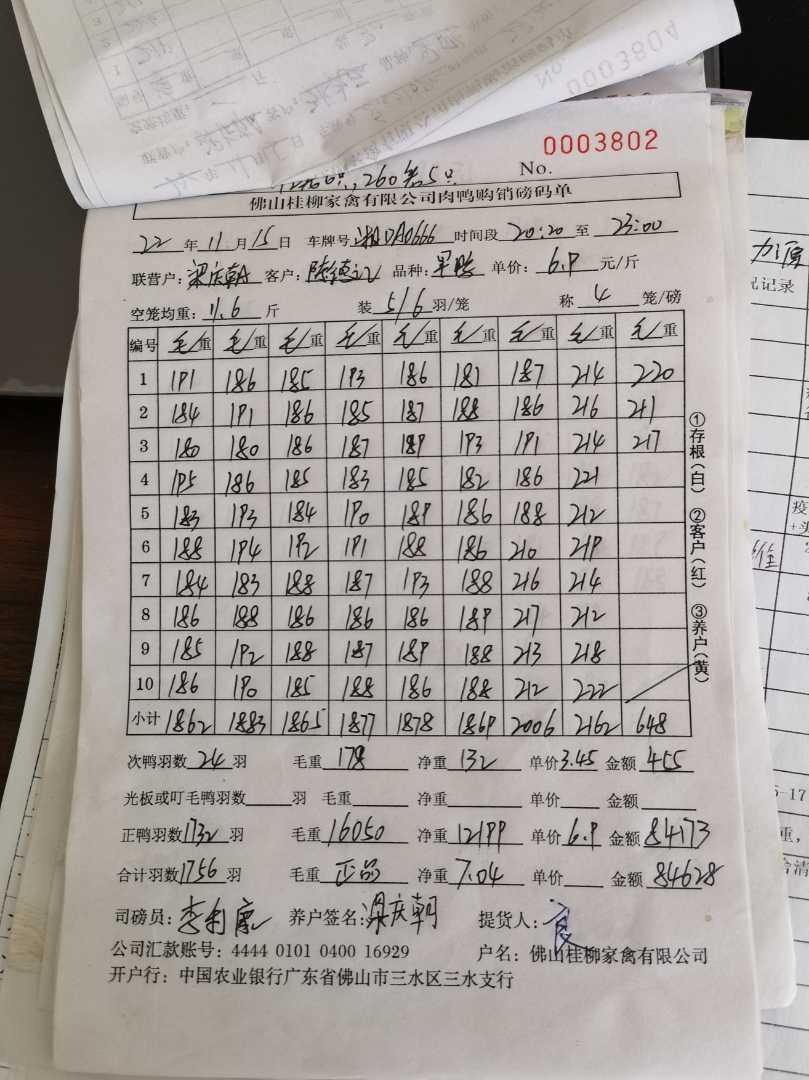 0003804
No.
0003802
No.
260笼5只
佛山桂柳家禽有限公司肉鸭购销磅码单
22年11月15日 车牌号湘DA0666 时间段20:20至23:00
联营户:梁庆朝 客户:陈德 品种: 单价:6.9元/斤
空笼均重:11.6斤 装5/6羽/笼 称4笼/磅
编号 毛/重 毛/重 毛/重 毛/重 毛/重 毛/重 毛/重 毛/重 毛/重
1 191 186 185 193 186 181 187 214 220
2 184 191 186 185 187 188 186 216 211
3 180 180 186 187 189 193 191 214 217
4 195 186 185 183 185 182 186 221
5 183 193 184 190 189 186 188 212
6 188 194 192 191 188 186 210 219
7 184 183 188 187 193 188 216 214
8 186 188 186 186 186 189 217 212
9 185 192 188 187 189 188 213 218
10 186 190 185 188 186 188 212 222
小计 1862 1883 1865 1877 1878 1869 2006 2162 648
次鸭羽数24羽 毛重178 净重132 单价3.45 金额455
光板或叮毛鸭羽数 羽 毛重 净重 单价 金额
正鸭羽数1732羽 毛重16050 净重12199 单价6.9 金额84173
合计羽数1756羽 毛重正品 净重7.04 单价 金额84628
司磅员:李利 养户签名:梁庆朝 提货人:
公司汇款账号:4444 0101 0400 16929 户名:佛山桂柳家禽有限公司
开户行:中国农业银行广东省佛山市三水区三水支行
①存根(白) ②客户(红) ③养户(黄)
况记录